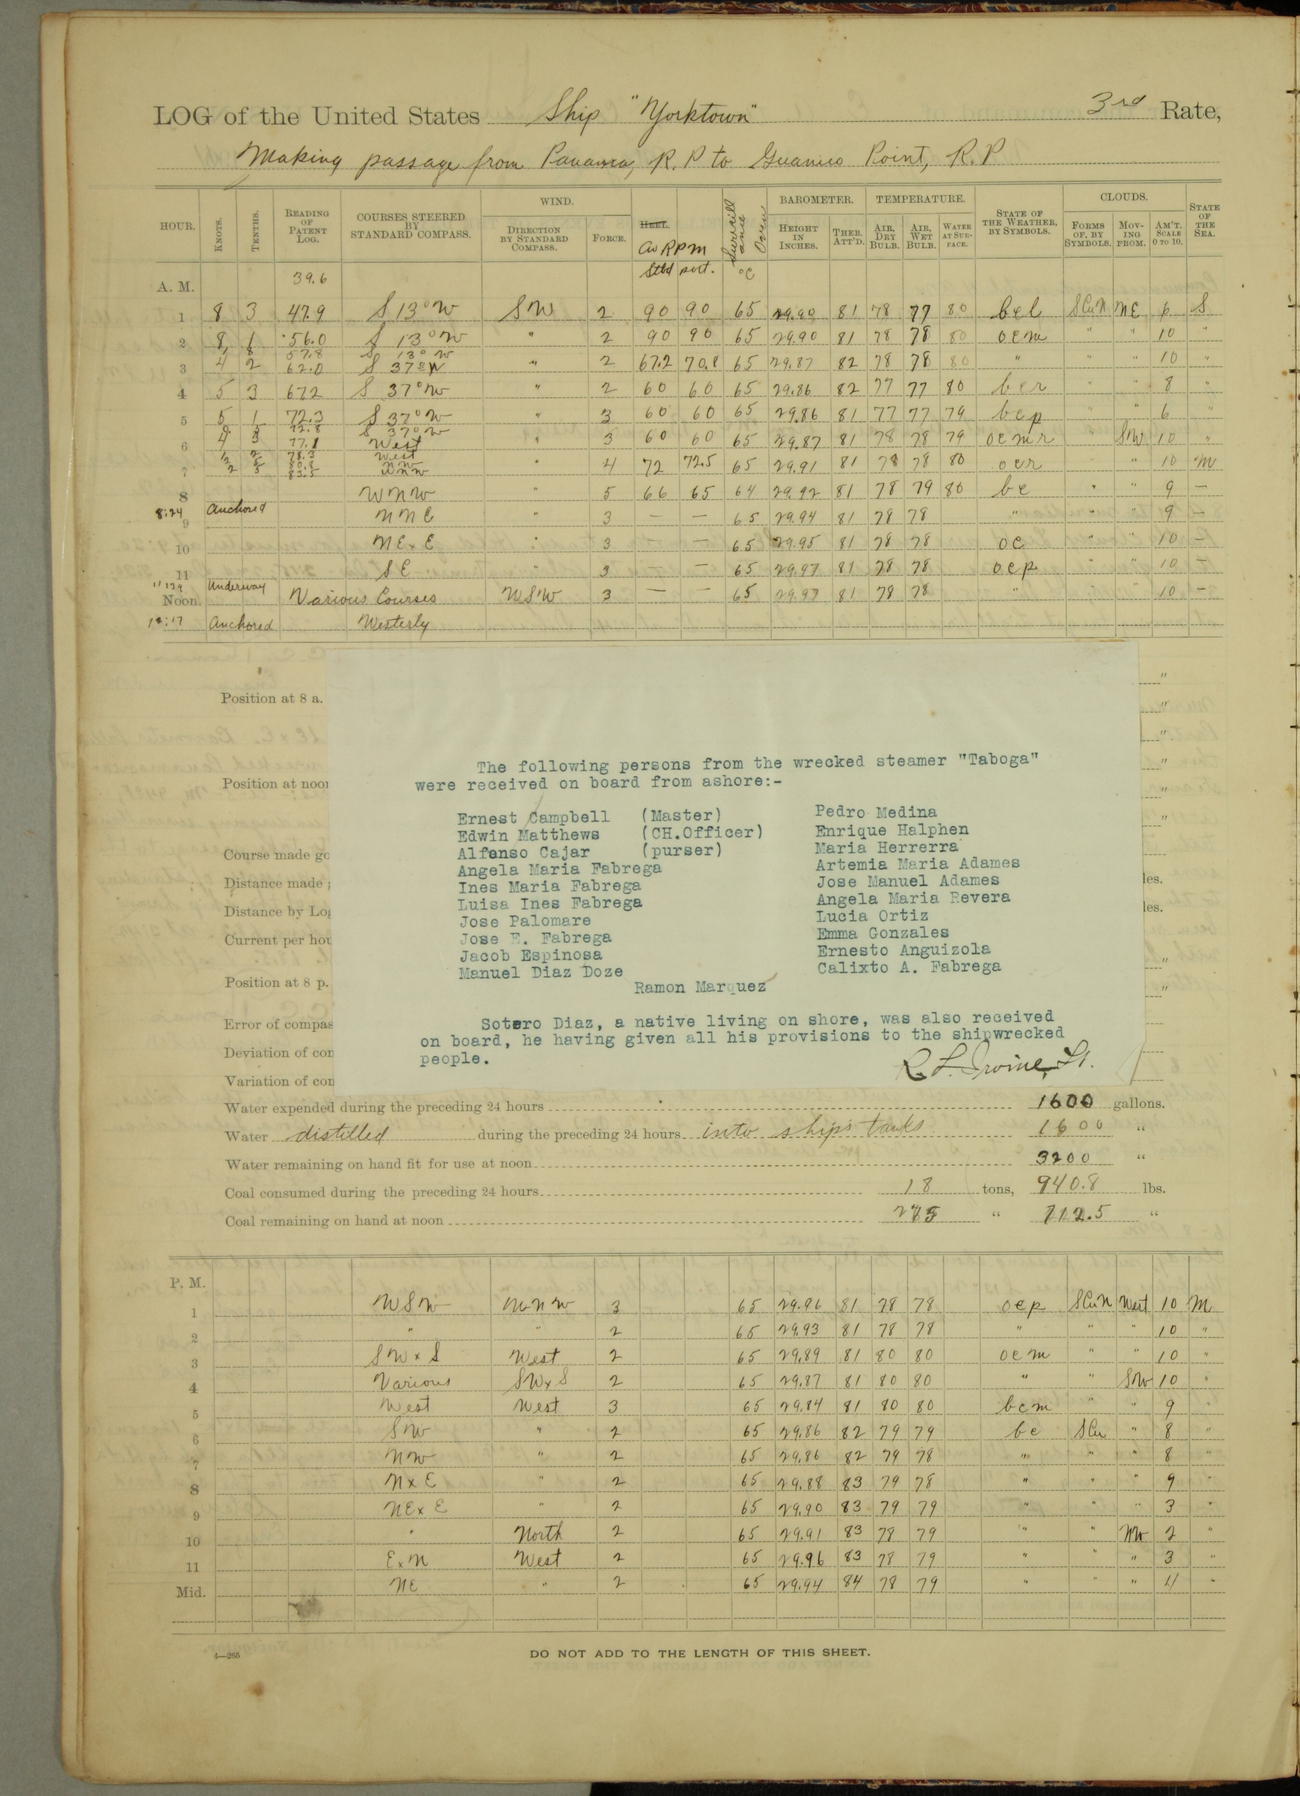 LOG of the United States Ship "Yorktown" 3rd Rate,
Making passage from Panama, R.P to Guanico Point, R.P
HOUR. KNOTS. TENTHS. READING OF PATENT LOG. COURSES STEERED BY STANDARD COMPASS. WIND. DIRECTION BY STANDARD COMPASS. FORCE. HEEL. Av RPM Stbd port. °C BAROMETER. HEIGHT IN INCHES. THER. ATT'D. TEMPERATURE. AIR, DRY BULB. AIR, WET BULB. WATER AT SURFACE. STATE OF THE WEATHER, BY SYMBOLS. CLOUDS. FORMS OF, BY SYMBOLS. MOVING FROM. AM'T. SCALE 0 TO 10. STATE OF THE SEA.
A. M. 39.6
1 8 3 47.9 S 13° W SW 2 90 90 65 29.90 81 78 77 80 bcl SCuN NE 6 S
2 8 1 56.0 S 13° W " 2 90 90 65 29.90 81 78 78 80 ocm " " 10 "
1 8 57.8 S 13° W
3 4 2 62.0 S 37° W " 2 67.2 70.8 65 29.87 82 78 78 80 " " " 10 "
4 5 3 67.2 S 37° W " 2 60 60 65 29.86 82 77 77 80 bcr " " 8 "
5 5 1 72.3 S 37° W " 3 60 60 65 29.86 81 77 77 79 bcp " " 6 "
72.8 S 37° W
6 4 3 77.1 West " 3 60 60 65 29.87 81 78 78 79 ocmr " SW 10 "
1 2 78.3 West
80.8 NW
7 2 83.5 WNW " 4 72 72.5 65 29.91 81 78 78 80 ocr " " 10 M
8 WNW " 5 66 65 64 29.92 81 78 79 80 bc " " 9 —
8:24 Anchored
9 NNE " 3 — — 65 29.94 81 78 78 " " " 9 —
10 NExE " 3 — — 65 29.95 81 78 78 oc " " 10 —
11 SE " 3 — — 65 29.97 81 78 78 ocp " " 10 —
11:29 Underway
Noon. Various Courses WSW 3 — — 65 29.97 81 78 78 " " " 10 —
12:17 Anchored Westerly
Position at 8 a.
Position at noon
Course made go
Distance made
Distance by Log
Current per hou
Position at 8 p.
Error of compas
Deviation of con
Variation of con
The following persons from the wrecked steamer "Taboga"
were received on board from ashore:-
Ernest Campbell (Master)
Edwin Matthews (CH.Officer)
Alfonso Cajar (purser)
Angela Maria Fabrega
Ines Maria Fabrega
Luisa Ines Fabrega
Jose Palomare
Jose E. Fabrega
Jacob Espinosa
Manuel Diaz Doze
Pedro Medina
Enrique Halphen
Maria Herrerra
Artemia Maria Adames
Jose Manuel Adames
Angela Maria Revera
Lucia Ortiz
Emma Gonzales
Ernesto Anguizola
Calixto A. Fabrega
Ramon Marquez
Sotero Diaz, a native living on shore, was also received
on board, he having given all his provisions to the shipwrecked
people.
R. L. Irvine, Lt.
les.
les.
Water expended during the preceding 24 hours 1600 gallons.
Water distilled during the preceding 24 hours into ship's tanks 1600 "
Water remaining on hand fit for use at noon 3200 "
Coal consumed during the preceding 24 hours 18 tons, 940.8 lbs.
Coal remaining on hand at noon 275 " 712.5 "
P. M.
1 WSW WNW 3 65 29.96 81 78 78 ocp SCuN West 10 M
2 " " 2 65 29.93 81 78 78 " " " 10 "
3 SWxS West 2 65 29.89 81 80 80 ocm " " 10 "
4 Various SWxS 2 65 29.87 81 80 80 " " SW 10 "
5 West West 3 65 29.84 81 80 80 bcm " " 9 "
6 SW " 2 65 29.86 82 79 79 bc SCu " 8 "
7 NW " 2 65 29.86 82 79 78 " " " 8 "
8 NxE " 2 65 29.88 83 79 78 " " " 9 "
9 NExE " 2 65 29.90 83 79 79 " " " 3 "
10 " North 2 65 29.91 83 78 79 " " NW 2 "
11 ExN West 2 65 29.96 83 78 79 " " " 3 "
Mid. NE " 2 65 29.94 84 78 79 " " " 4 "
4—265
DO NOT ADD TO THE LENGTH OF THIS SHEET.